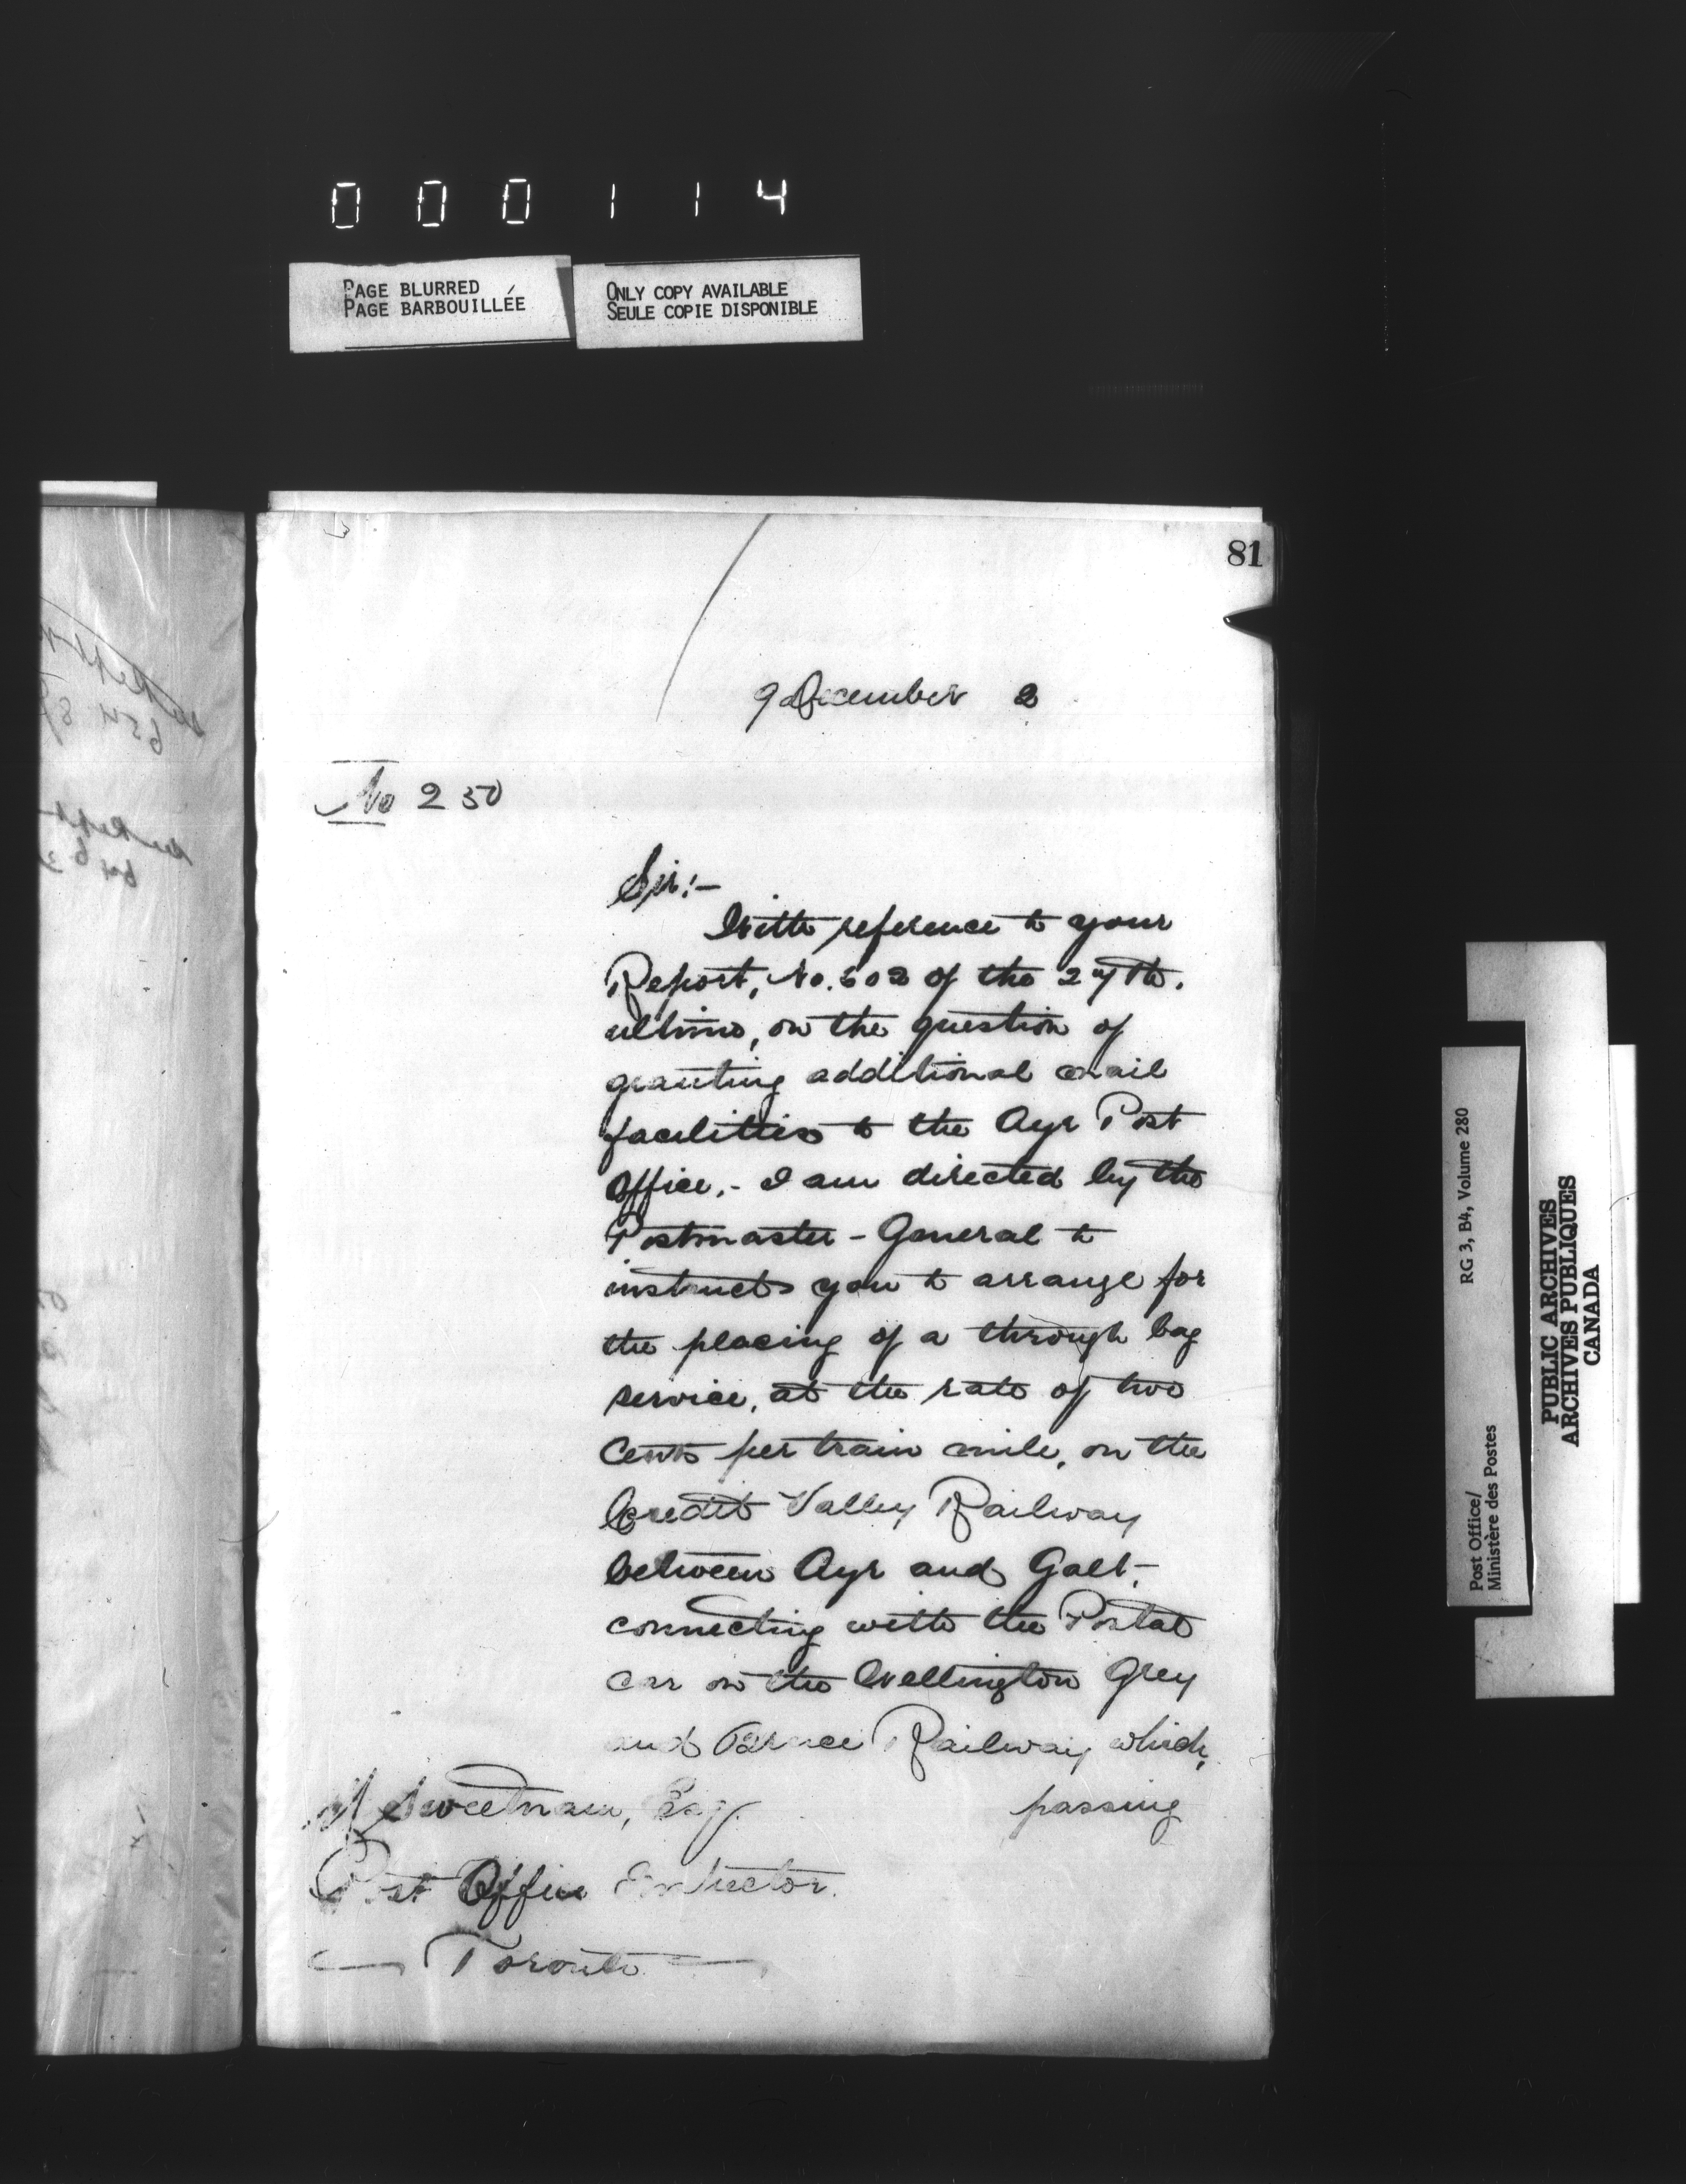 000114
PAGE BLURRED
PAGE BARBOUILLÉE
ONLY COPY AVAILABLE
SEULE COPIE DISPONIBLE
81
9 December 2
No 250
Sir:-
With reference to your
Report, No. 602 of the 27th.
ultimo, on the question of
granting additional mail
facilities to the Ayr Post
Office,- I am directed by the
Postmaster-General to
instruct you to arrange for
the placing of a through bag
service, at the rate of two
Cents per train mile, on the
Credit Valley Railway
between Ayr and Galt,-
connecting with the Postal
Car on the Wellington Grey
and Bruce Railway which,
passing
M Sweetnam, Esq.
Post Office Inspector.
Toronto
RG 3, B4, Volume 280
Post Office/
Ministère des Postes
PUBLIC ARCHIVES
ARCHIVES PUBLIQUES
CANADA